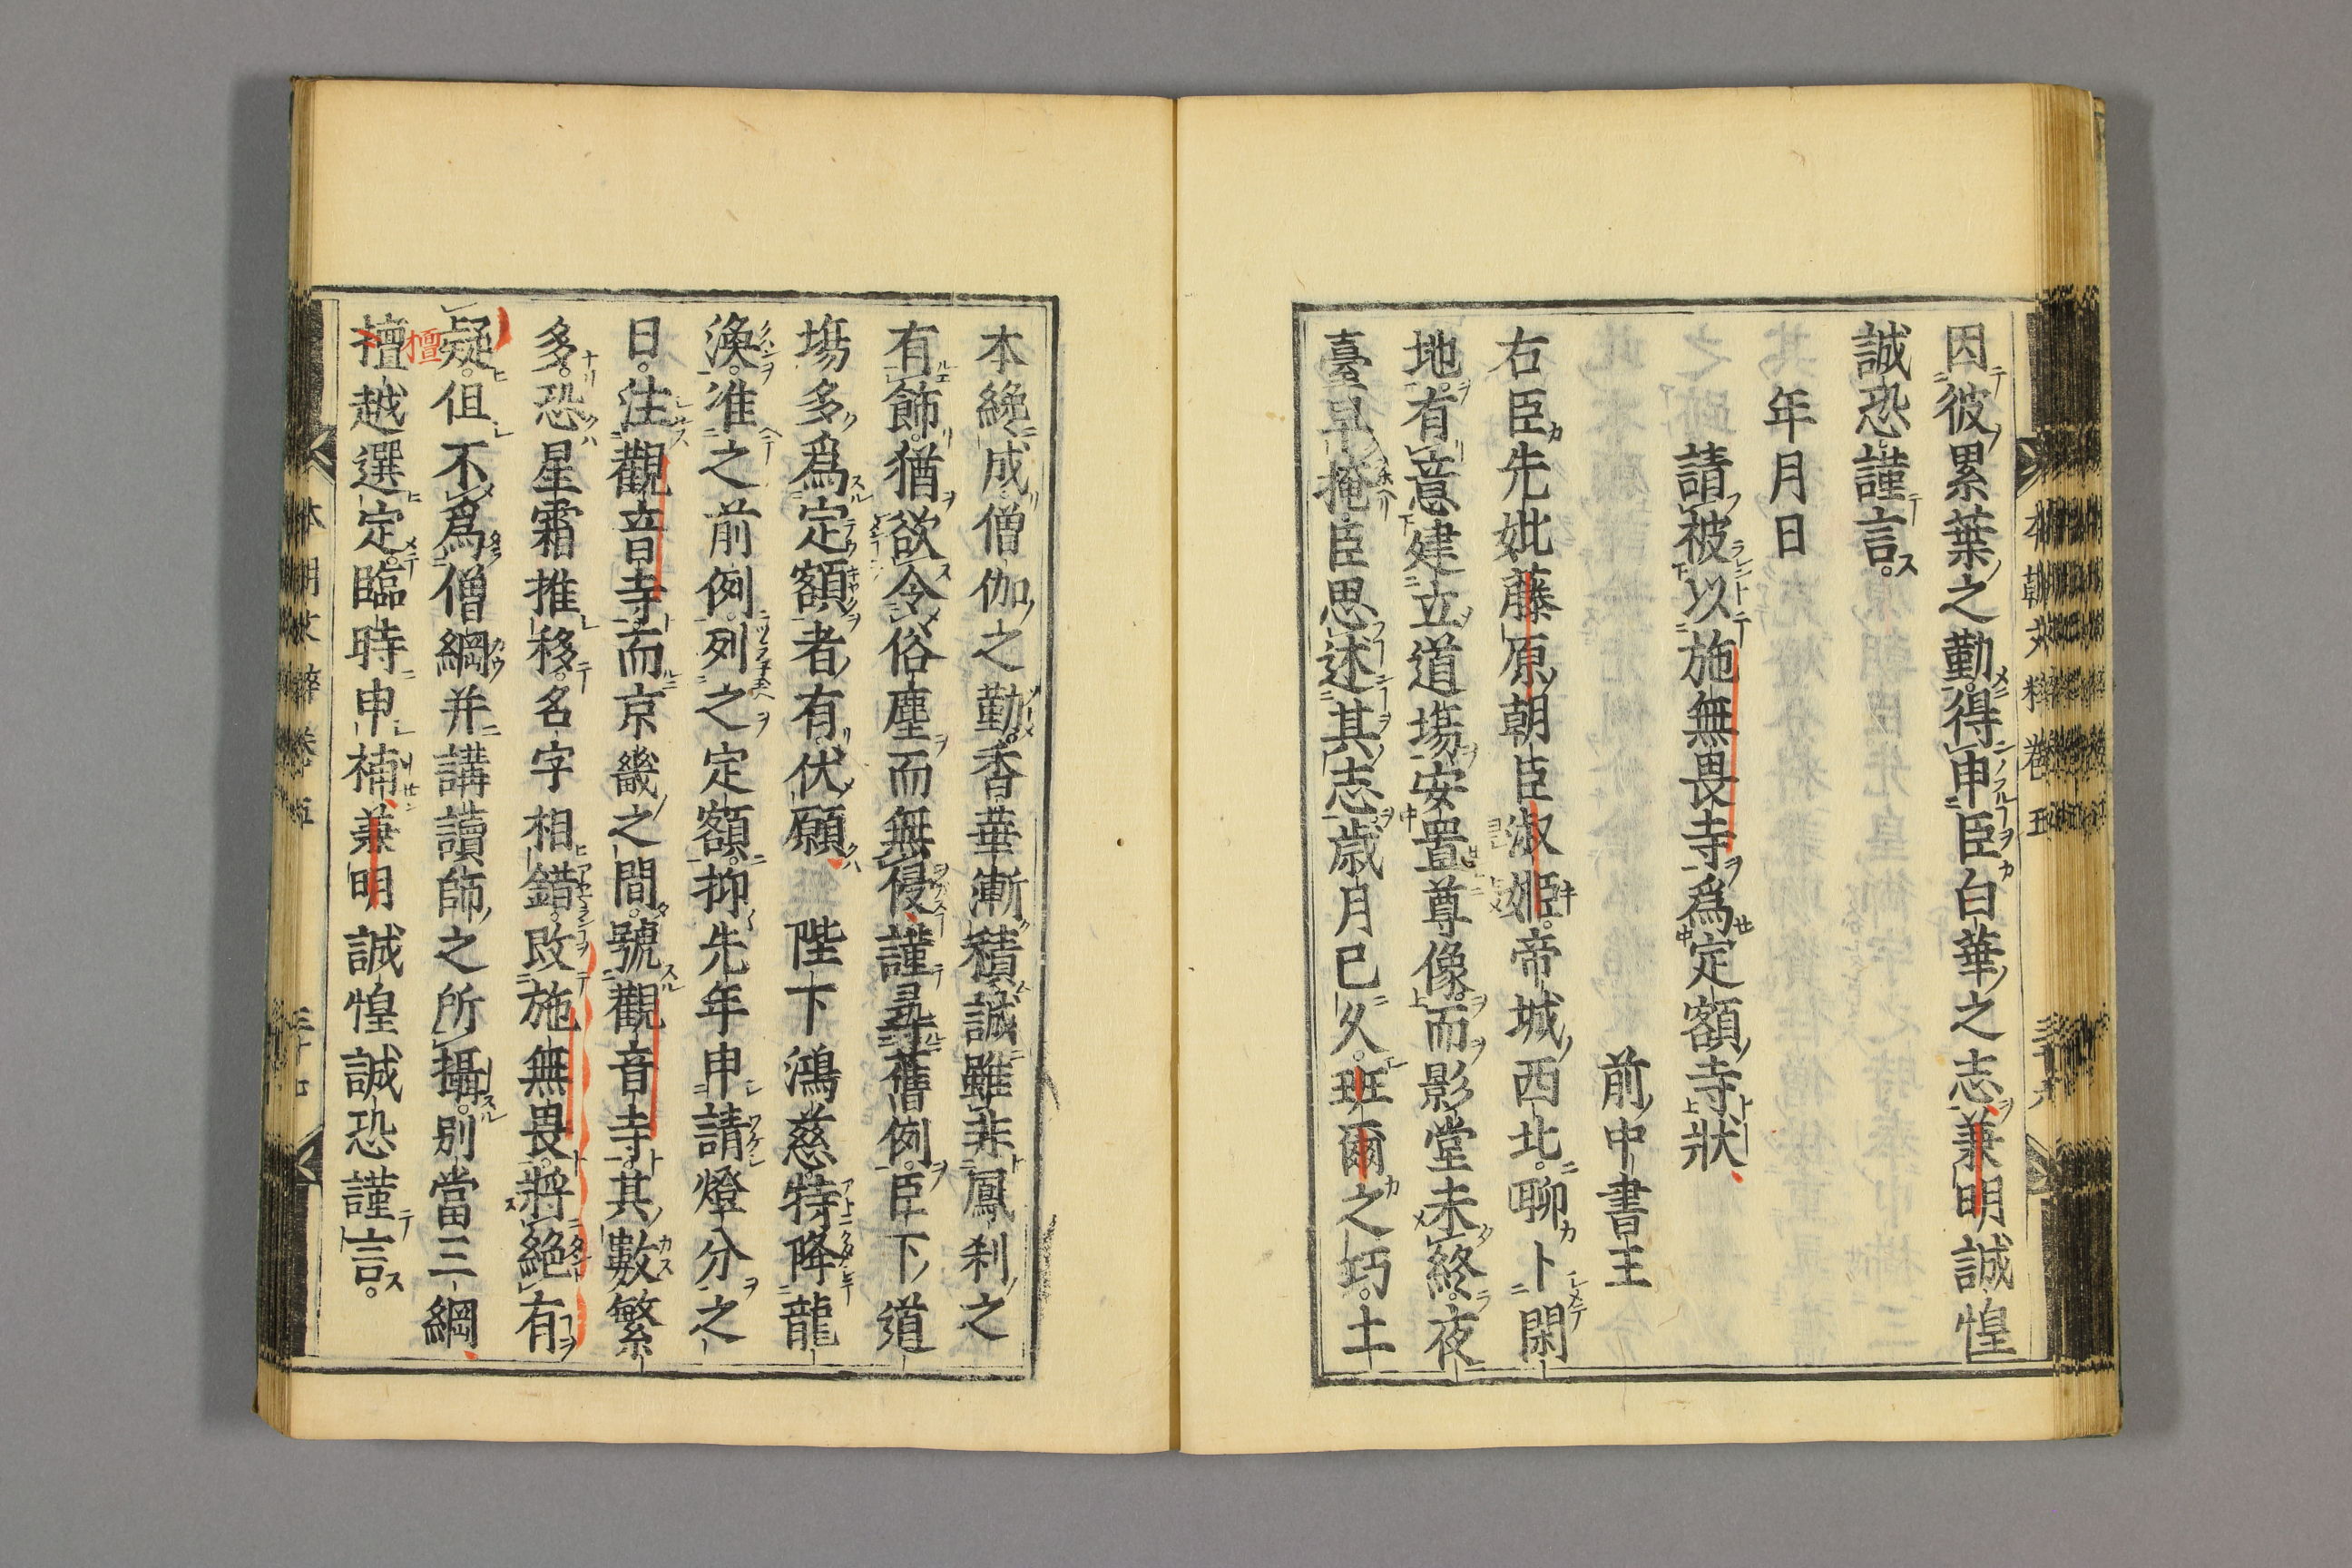 因彼累葉之勤。得申臣白華之志。兼明誠惶
誠恐謹言。
年月日
請被以施無畏寺為定額寺狀
前中書王
右臣先妣藤原朝臣淑姬。帝城西北。聊卜閑
地。有意建立道場。安置尊像。而影堂未終。夜
臺早掩。臣思述其志。歳月已久。班爾之巧。土
本朝文粹卷五
本纔成。僧伽之勤。香華漸積。誠雖非鳳刹之
有飾。猶欲令俗塵而無侵。謹尋舊例。臣下道
場多為定額者有。伏願陛下鴻慈。特降龍
渙。准之前例。列之定額。抑先年申請燈分之
日。注觀音寺。而京畿之間。號觀音寺。其數繁
多。恐星霜推移。名字相錯。改施無畏。將絕有
疑。但不為僧綱并講讀師之所攝。別當三綱
擅越選定。臨時申補。兼明誠惶誠恐謹言。
檀